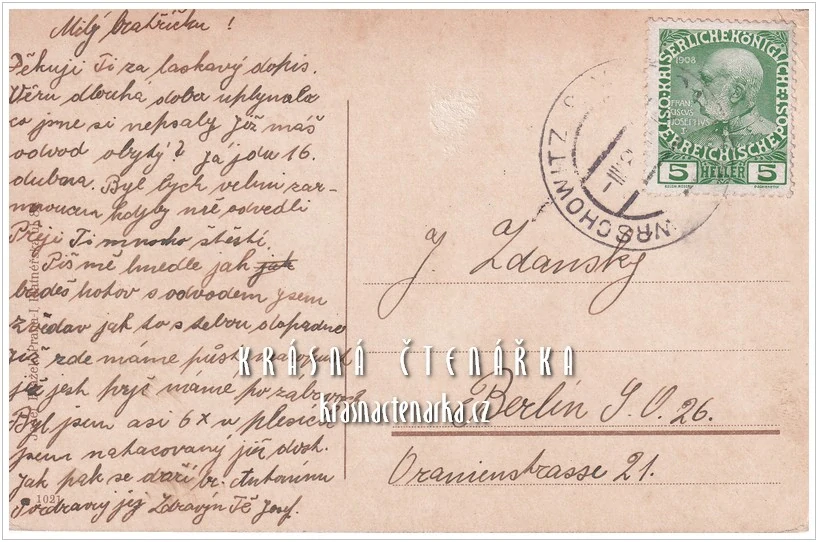 Milý bratříčku!
Děkuji Ti za laskavý dopis.
Věru dlouhá doba uplynula
co jsme si nepsaly Již máš
odvod obytý? Já jdu 16.
dubna. Byl bych velmi zar-
moucen kdyby mě odvedli
Přeji Ti mnoho štěstí.
Piš mě hnedle jak jak
budeš hotov s odvodem jsem
zvědav jak to s tebou dopadne
již zde máme půst
již jest pryč máme po zábavách
Byl jsem asi 6x v plesích
jsem natacovaný již dost.
Jak pak se daří br. Antonínu
Pozdravuj jej Zdravím Tě Josef.
1908
FRAN
CISCUS
JOSEPHUS
I
KAISERLICHE KÖNIGLICHE
ÖSTERREICHISCHE POST
5 HELLER 5
WRSCHOWITZ
J. Zdanský
KRÁSNÁ ČTENÁŘKA
krasnactenarka.cz
Berlín S.O. 26.
Oranienstrasse 21.
Praha-I,
1021